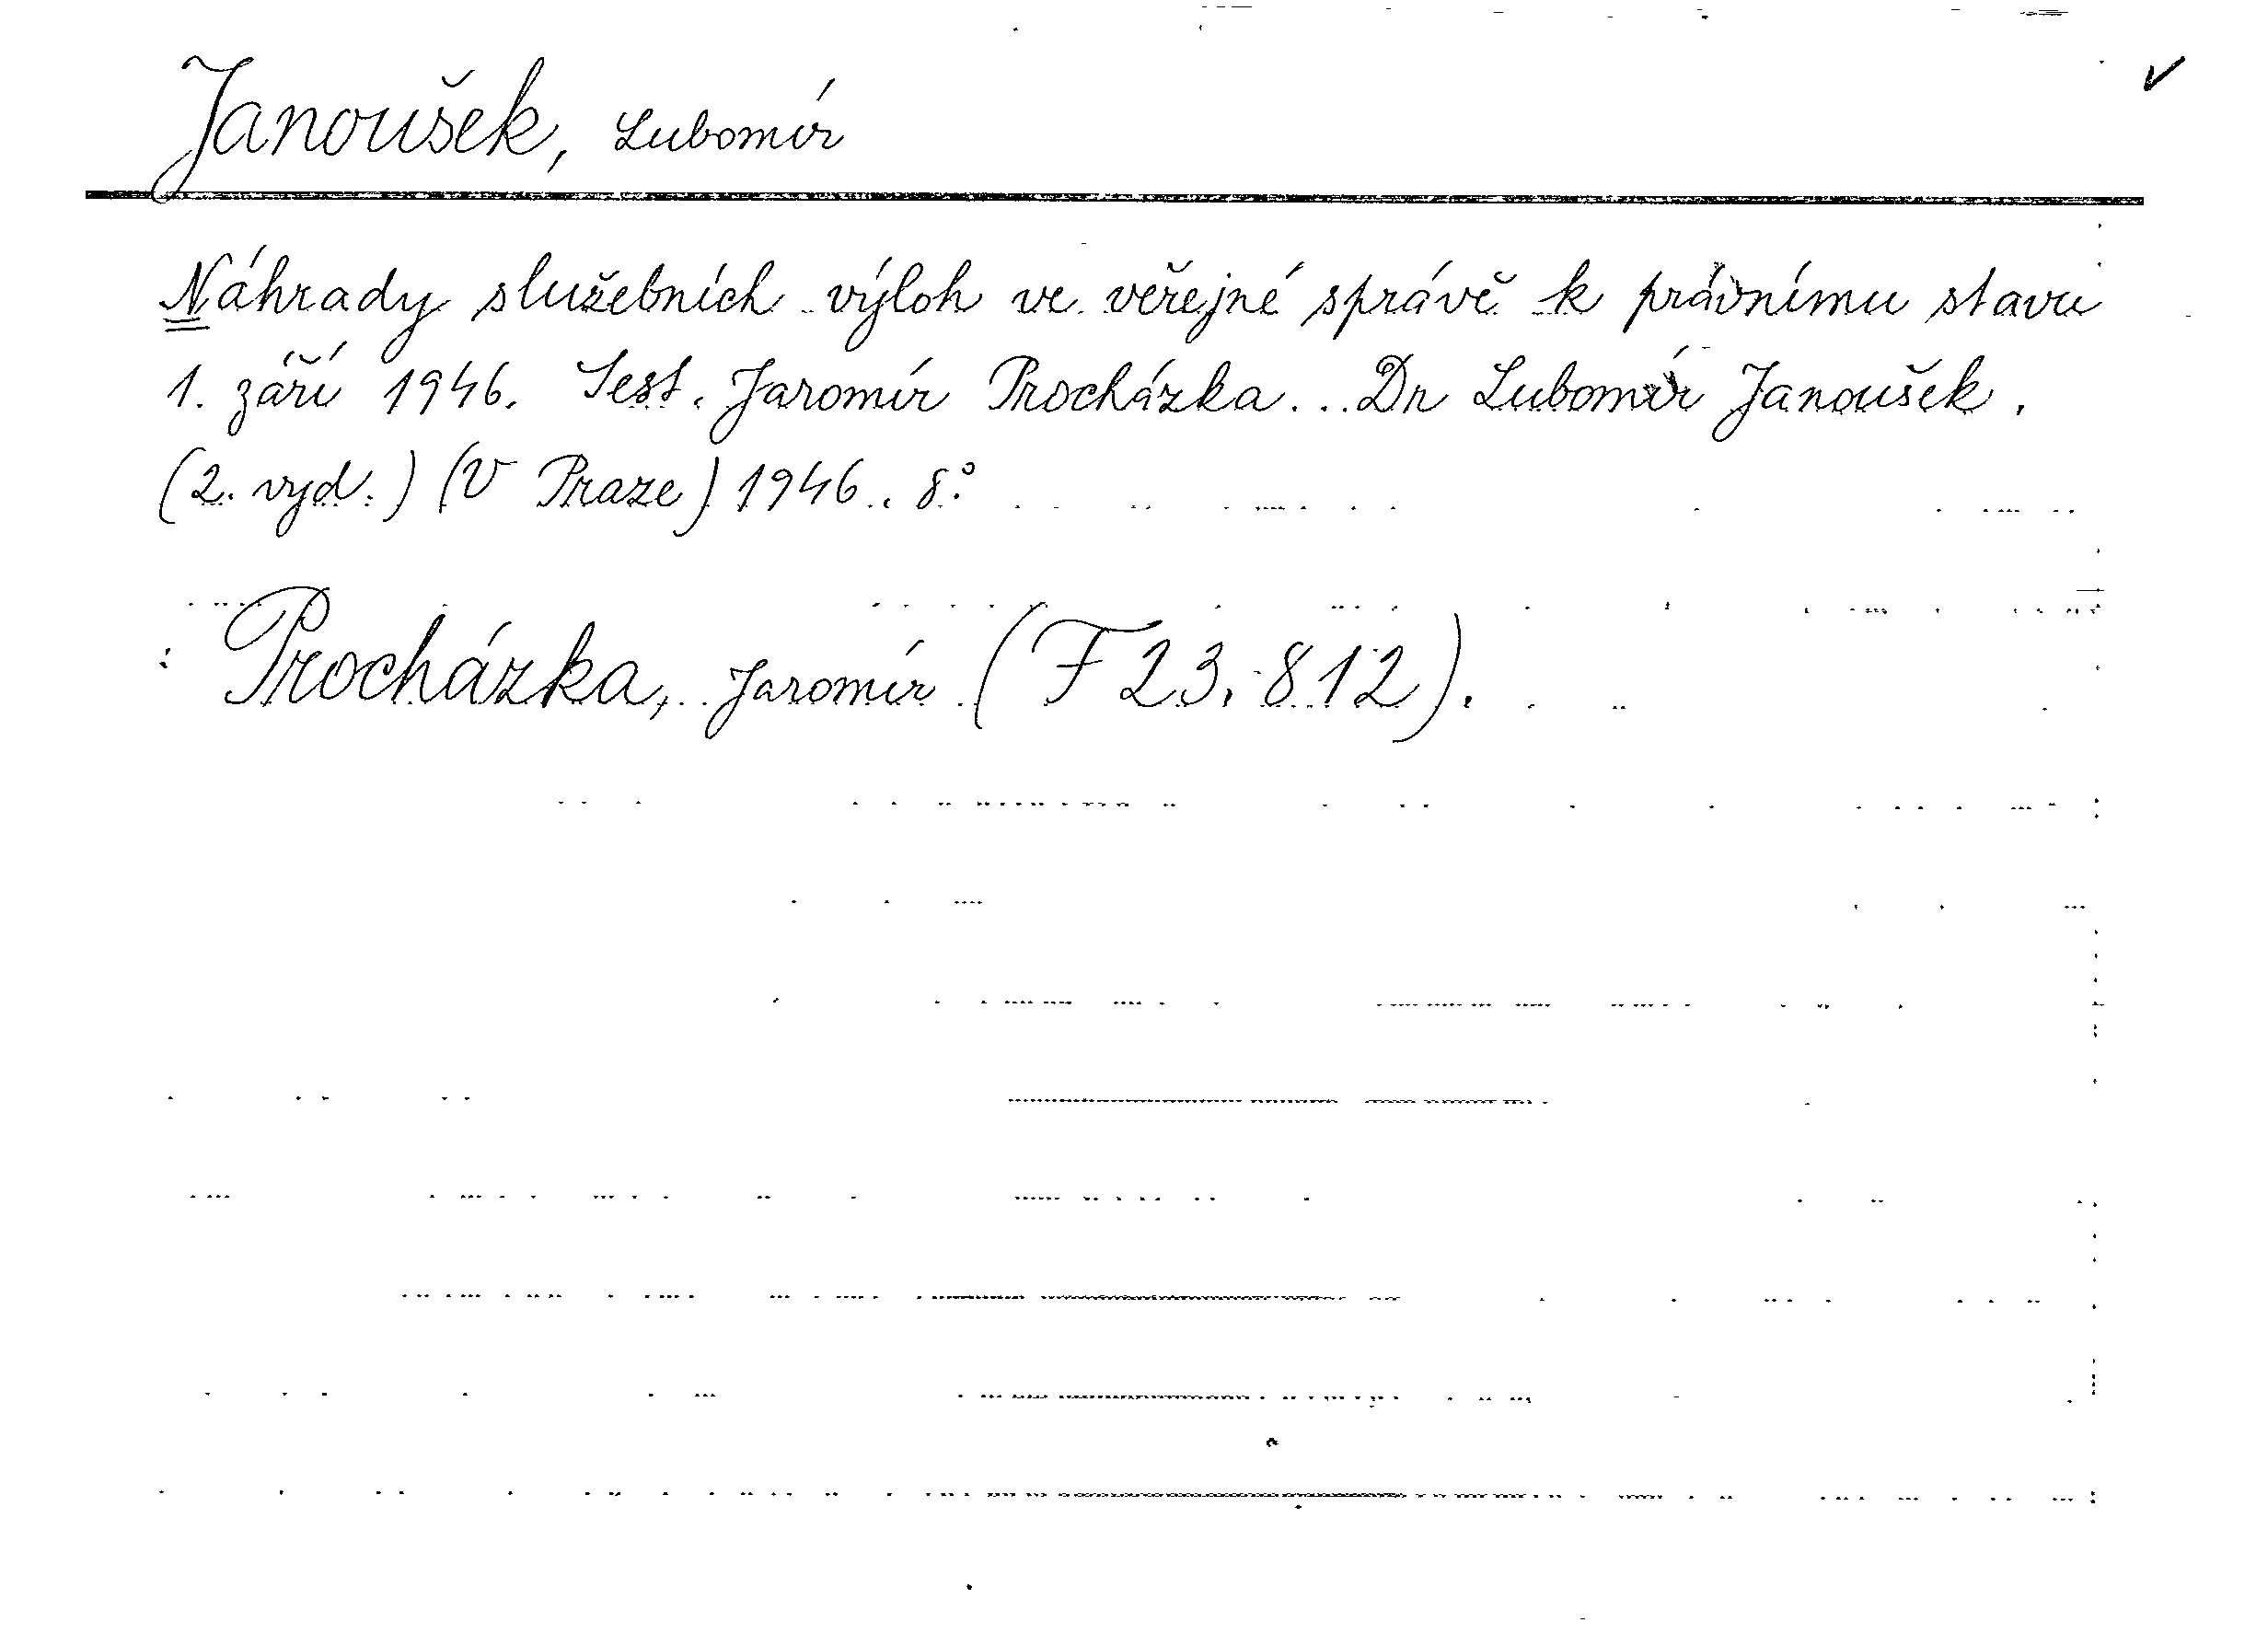 Janoušek, Lubomír
Náhrady služebních výloh ve veřejné správě k právnímu stavu
1. září 1946. Sest. Jaromír Procházka... Dr Lubomír Janoušek.
(2. vyd.) (V Praze) 1946. 8°.
Procházka, Jaromír (F 23.812).